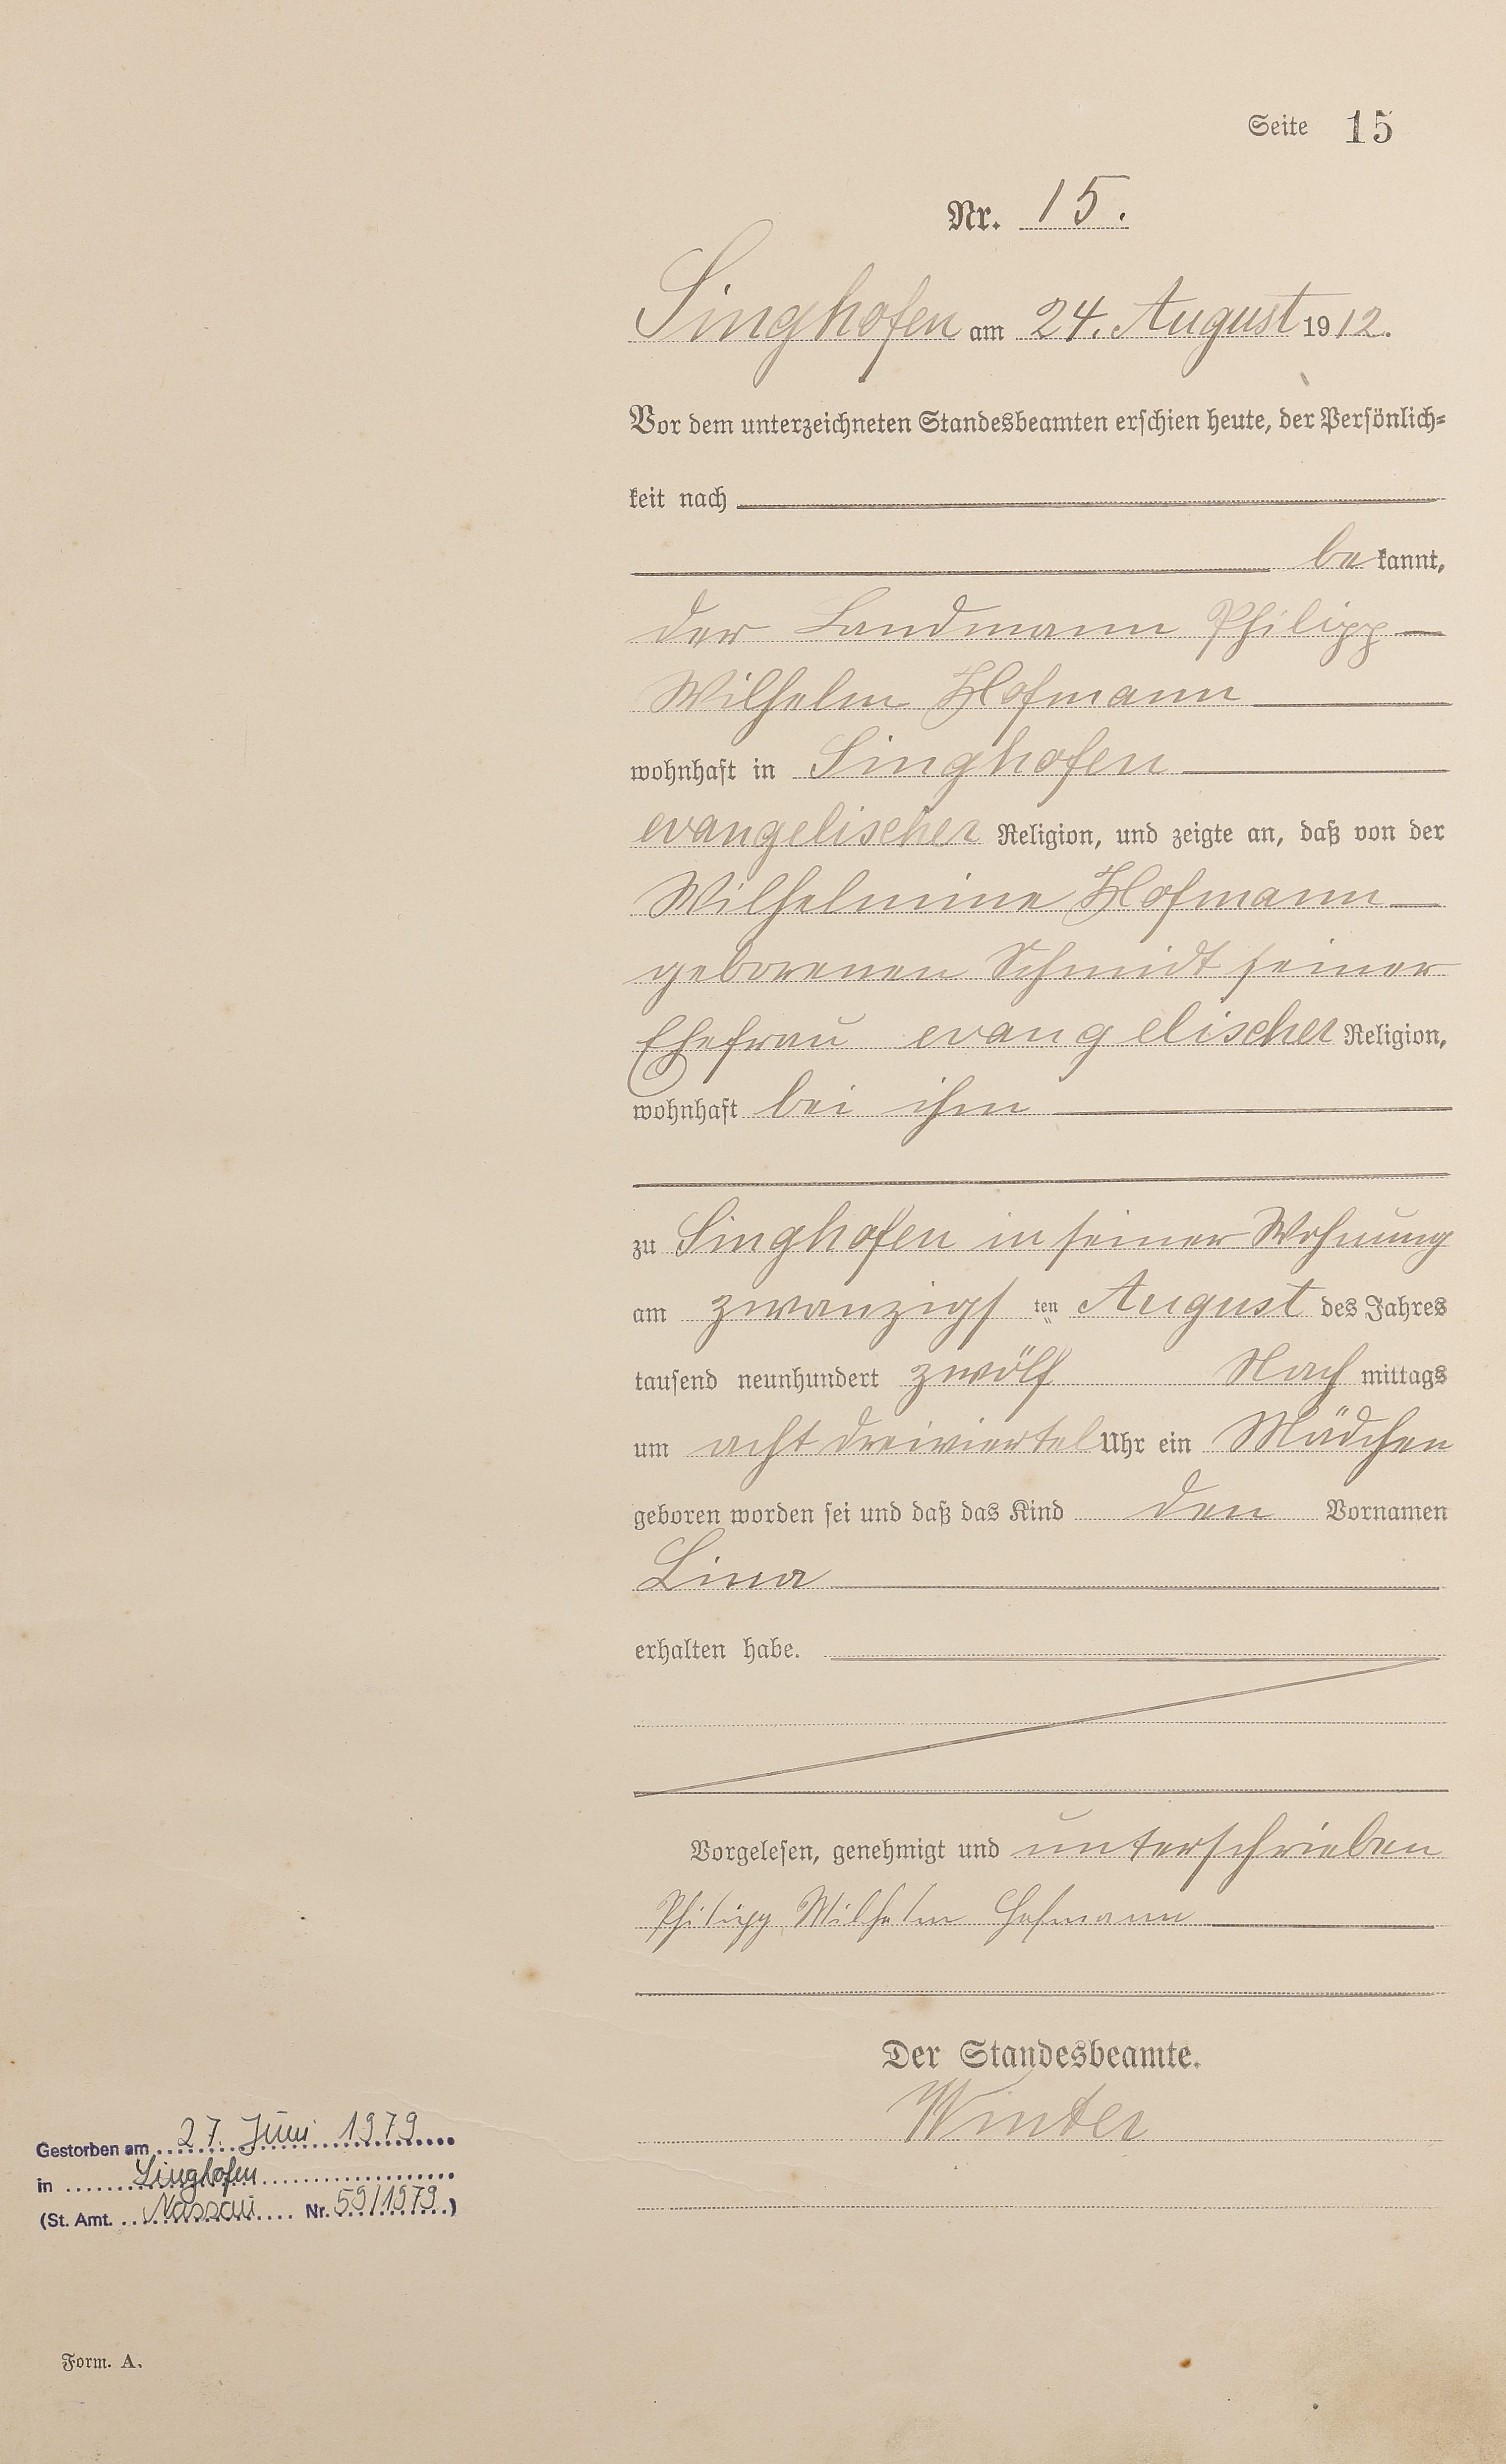 Seite 15
Nr. 15.
Singhofen am 24. August 1912.
Vor dem unterzeichneten Standesbeamten erschien heute, der Persönlich-
keit nach
bekannt,
der Landmann Philipp
Wilhelm Hofmann
wohnhaft in Singhofen
evangelischer Religion, und zeigte an, daß von der
Wilhelmine Hofmann
geborenen Schmidt seiner
Ehefrau evangelischer Religion,
wohnhaft bei ihm
zu Singhofen in seiner Wohnung
am zwanzigsten August des Jahres
tausend neunhundert zwölf Nachmittags
um acht dreiviertel Uhr ein Mädchen
geboren worden sei und daß das Kind den Vornamen
Lina
erhalten habe.
Vorgelesen, genehmigt und unterschrieben
Philipp Wilhelm Hofmann
Der Standesbeamte.
Winter
Gestorben am 27. Juni 1979
in Singhofen
(St. Amt. Nassau Nr. 59/1979)
Form. A.